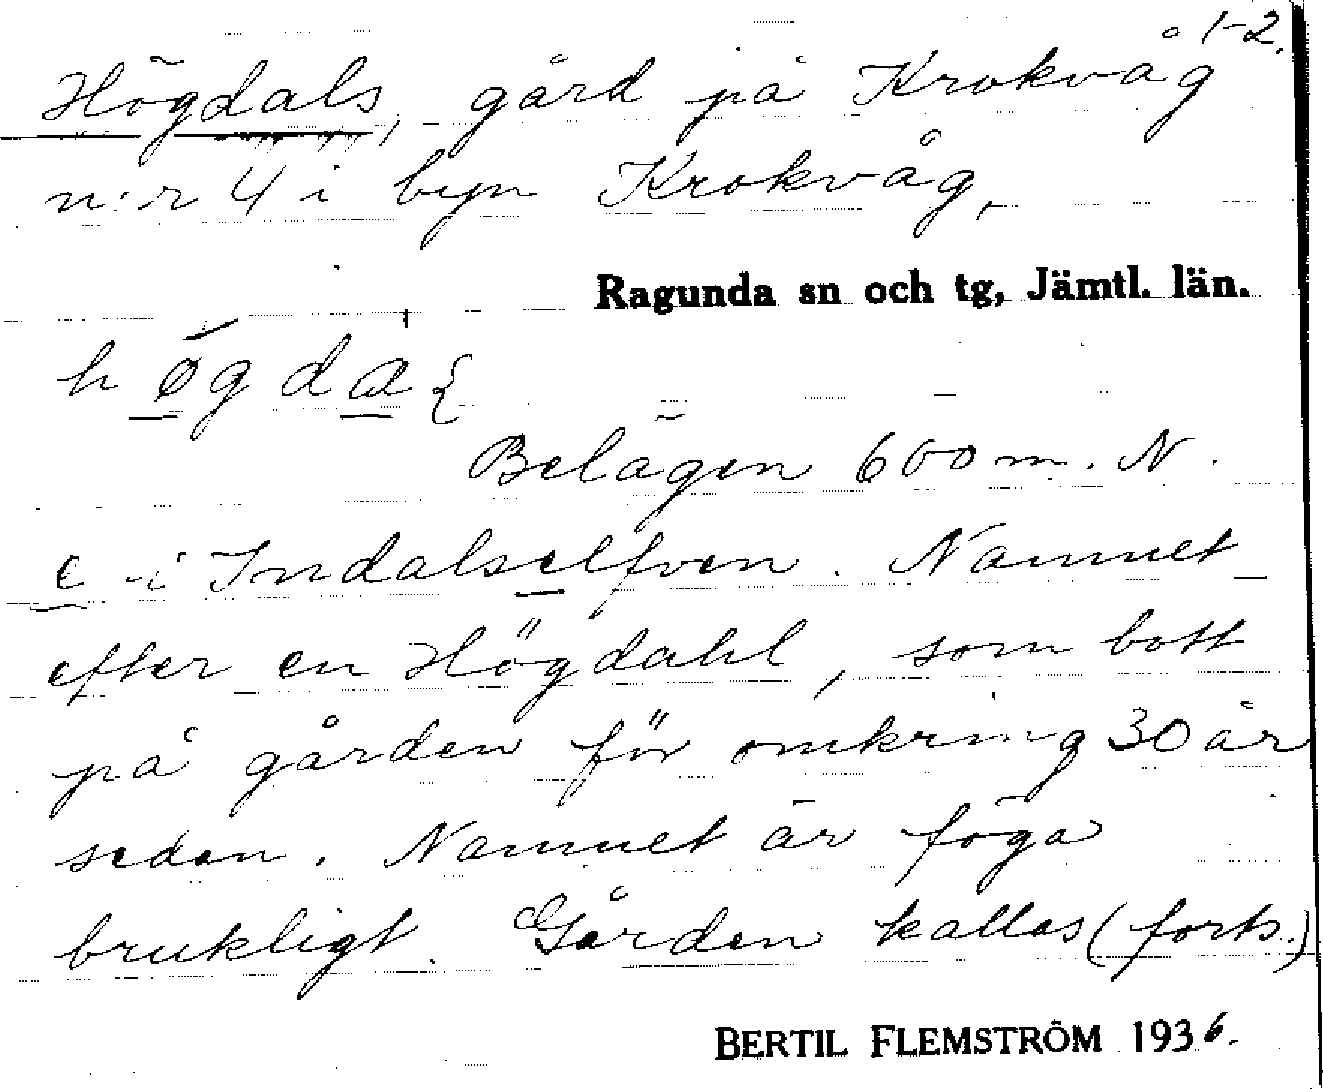 1-2.
Högdals, gård på Krokvåg
n:r 4 i byn Krokvåg,
Ragunda sn och tg, Jämtl. län.
Belägen 600 m. N.
e i Indalselfven. Namnet
efter en Högdahl, som bott
på gården för omkring 30 år
sedan. Namnet är föga
brukligt. Gården kallas (forts.)
BERTIL FLEMSTRÖM 1936.